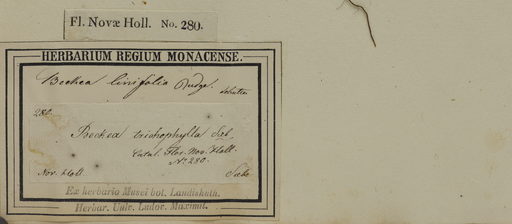 Fl. Novæ Holl. No. 280.
HERBARIUM REGIUM MONACENSE.
Beckea linifolia Rudge.
280.
Beckea trichophylla Sieb.
Catal. Flor. Nov. Holl.
No. 280.
Nov. Holl.
Ex herbario Musei bot. Landishuth.
Herbar. Univ. Ludov. Maximil.